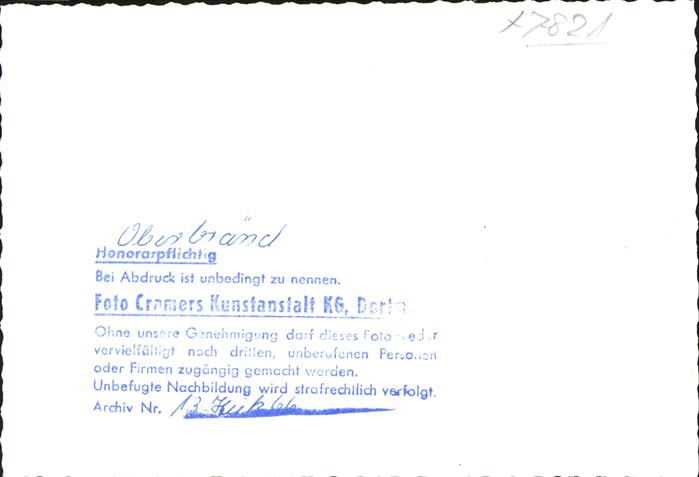 x7821
Oberbränd
Honorarpflichtig
Bei Abdruck ist unbedingt zu nennen.
Foto Cramers Kunstanstalt KG, Dortm
Ohne unsere Genehmigung darf dieses Foto weder
vervielfältigt noch dritten, unberufenen Personen
oder Firmen zugängig gemacht werden.
Unbefugte Nachbildung wird strafrechtlich verfolgt.
Archiv Nr. 13